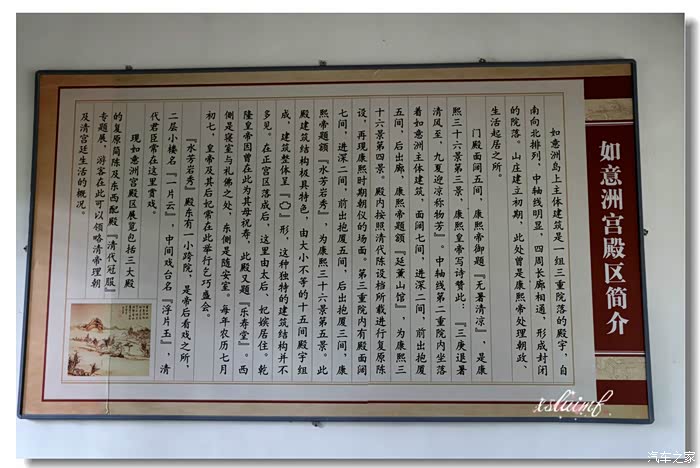 如意洲宫殿区简介
如意洲岛上主体建筑是一组三重院落的殿宇，自
南向北排列，中轴线明显，四周长廊相通，形成封闭
的院落。山庄建立初期，此处曾是康熙帝处理朝政、
生活起居之所。
门殿面阔五间，康熙帝御题『无暑清凉』，是康
熙三十六景第三景，康熙皇帝写诗赞此：『三庚退暑
清风至，九夏迎凉称物芳』。中轴线第二重院内坐落
着如意洲主体建筑，面阔七间，进深二间，前出抱厦
五间，后出廊，康熙帝题额『延薰山馆』，为康熙三
十六景第四景。殿内按照清代陈设档所载进行复原陈
设，再现康熙时期朝仪的场面。第三重院内有殿面阔
七间，进深二间，前出抱厦五间，后出抱厦三间，康
熙帝题额『水芳岩秀』，为康熙三十六景第五景。此
殿建筑结构极具特色，由大小不等的十五间殿宇组
成，建筑整体呈『凸』形，这种独特的建筑结构并不
多见。在正宫区落成后，这里由太后、妃嫔居住。乾
隆皇帝因曾在此为其母祝寿，此殿又题『乐寿堂』。西
侧是寝室与礼佛之处，东侧是随安室。每年农历七月
初七，皇帝及其后妃常在此举行乞巧盛会。
『水芳岩秀』殿东有一小跨院，是帝后看戏之所，
二层小楼名『一片云』，中间戏台名『浮片玉』，清
代君臣常在这里赏戏。
现如意洲宫殿区展览包括三大殿
的复原简陈及东西配殿『清代冠服』
专题展，游客在此可以领略清帝理朝
及清宫廷生活的概况。
xsluimf
汽车之家